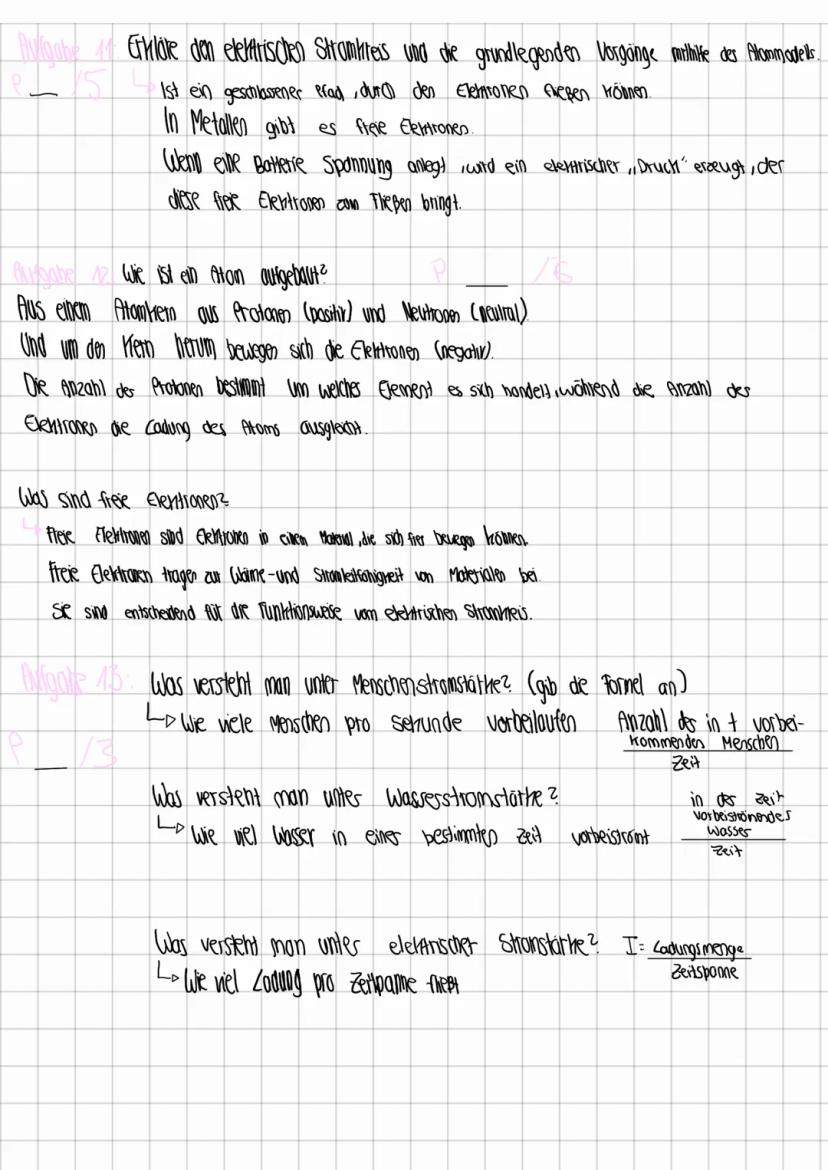 Aufgabe 11: Erkläre den elektrischen Stromkreis und die grundlegenden Vorgänge mithilfe des Atommodells.
P __ /5 ↳ Ist ein geschlossener Pfad, durch den Elektronen fließen können.
In Metallen gibt es freie Elektronen.
Wenn eine Batterie Spannung anlegt, wird ein elektrischer „Druck“ erzeugt, der
diese freie Elektronen zum Fließen bringt.
Aufgabe 12: Wie ist ein Atom aufgebaut? P __ /6
Aus einem Atomkern aus Protonen (positiv) und Neutronen (neutral)
Und um den Kern herum bewegen sich die Elektronen (negativ).
Die Anzahl der Protonen bestimmt um welches Element es sich handelt, während die Anzahl des
Elektronen die Ladung des Atoms ausgleicht.
Was sind freie Elektronen?
↳ Freie Elektronen sind Elektronen in einem Material, die sich frei bewegen können.
Freie Elektronen tragen zur Wärme- und Stromleitfähigkeit von Materialen bei.
Sie sind entscheidend für die Funktionsweise vom elektrischen Stromkreis.
Aufgabe 13: Was versteht man unter Menschenstromstärke? (gib die Formel an)
↳ Wie viele Menschen pro sekunde vorbeilaufen Anzahl des in t vorbei-
kommenden Menschen
P __ /3 Zeit
Was versteht man unter Wasserstromstärke? in der Zeit
vorbeiströmendes
↳ Wie viel Wasser in einer bestimmten Zeit vorbeiströmt Wasser
Zeit
Was versteht man unter elektrischer Stromstärke? I = Ladungsmenge
Zeitspanne
↳ Wie viel Ladung pro Zeitpanne fließt